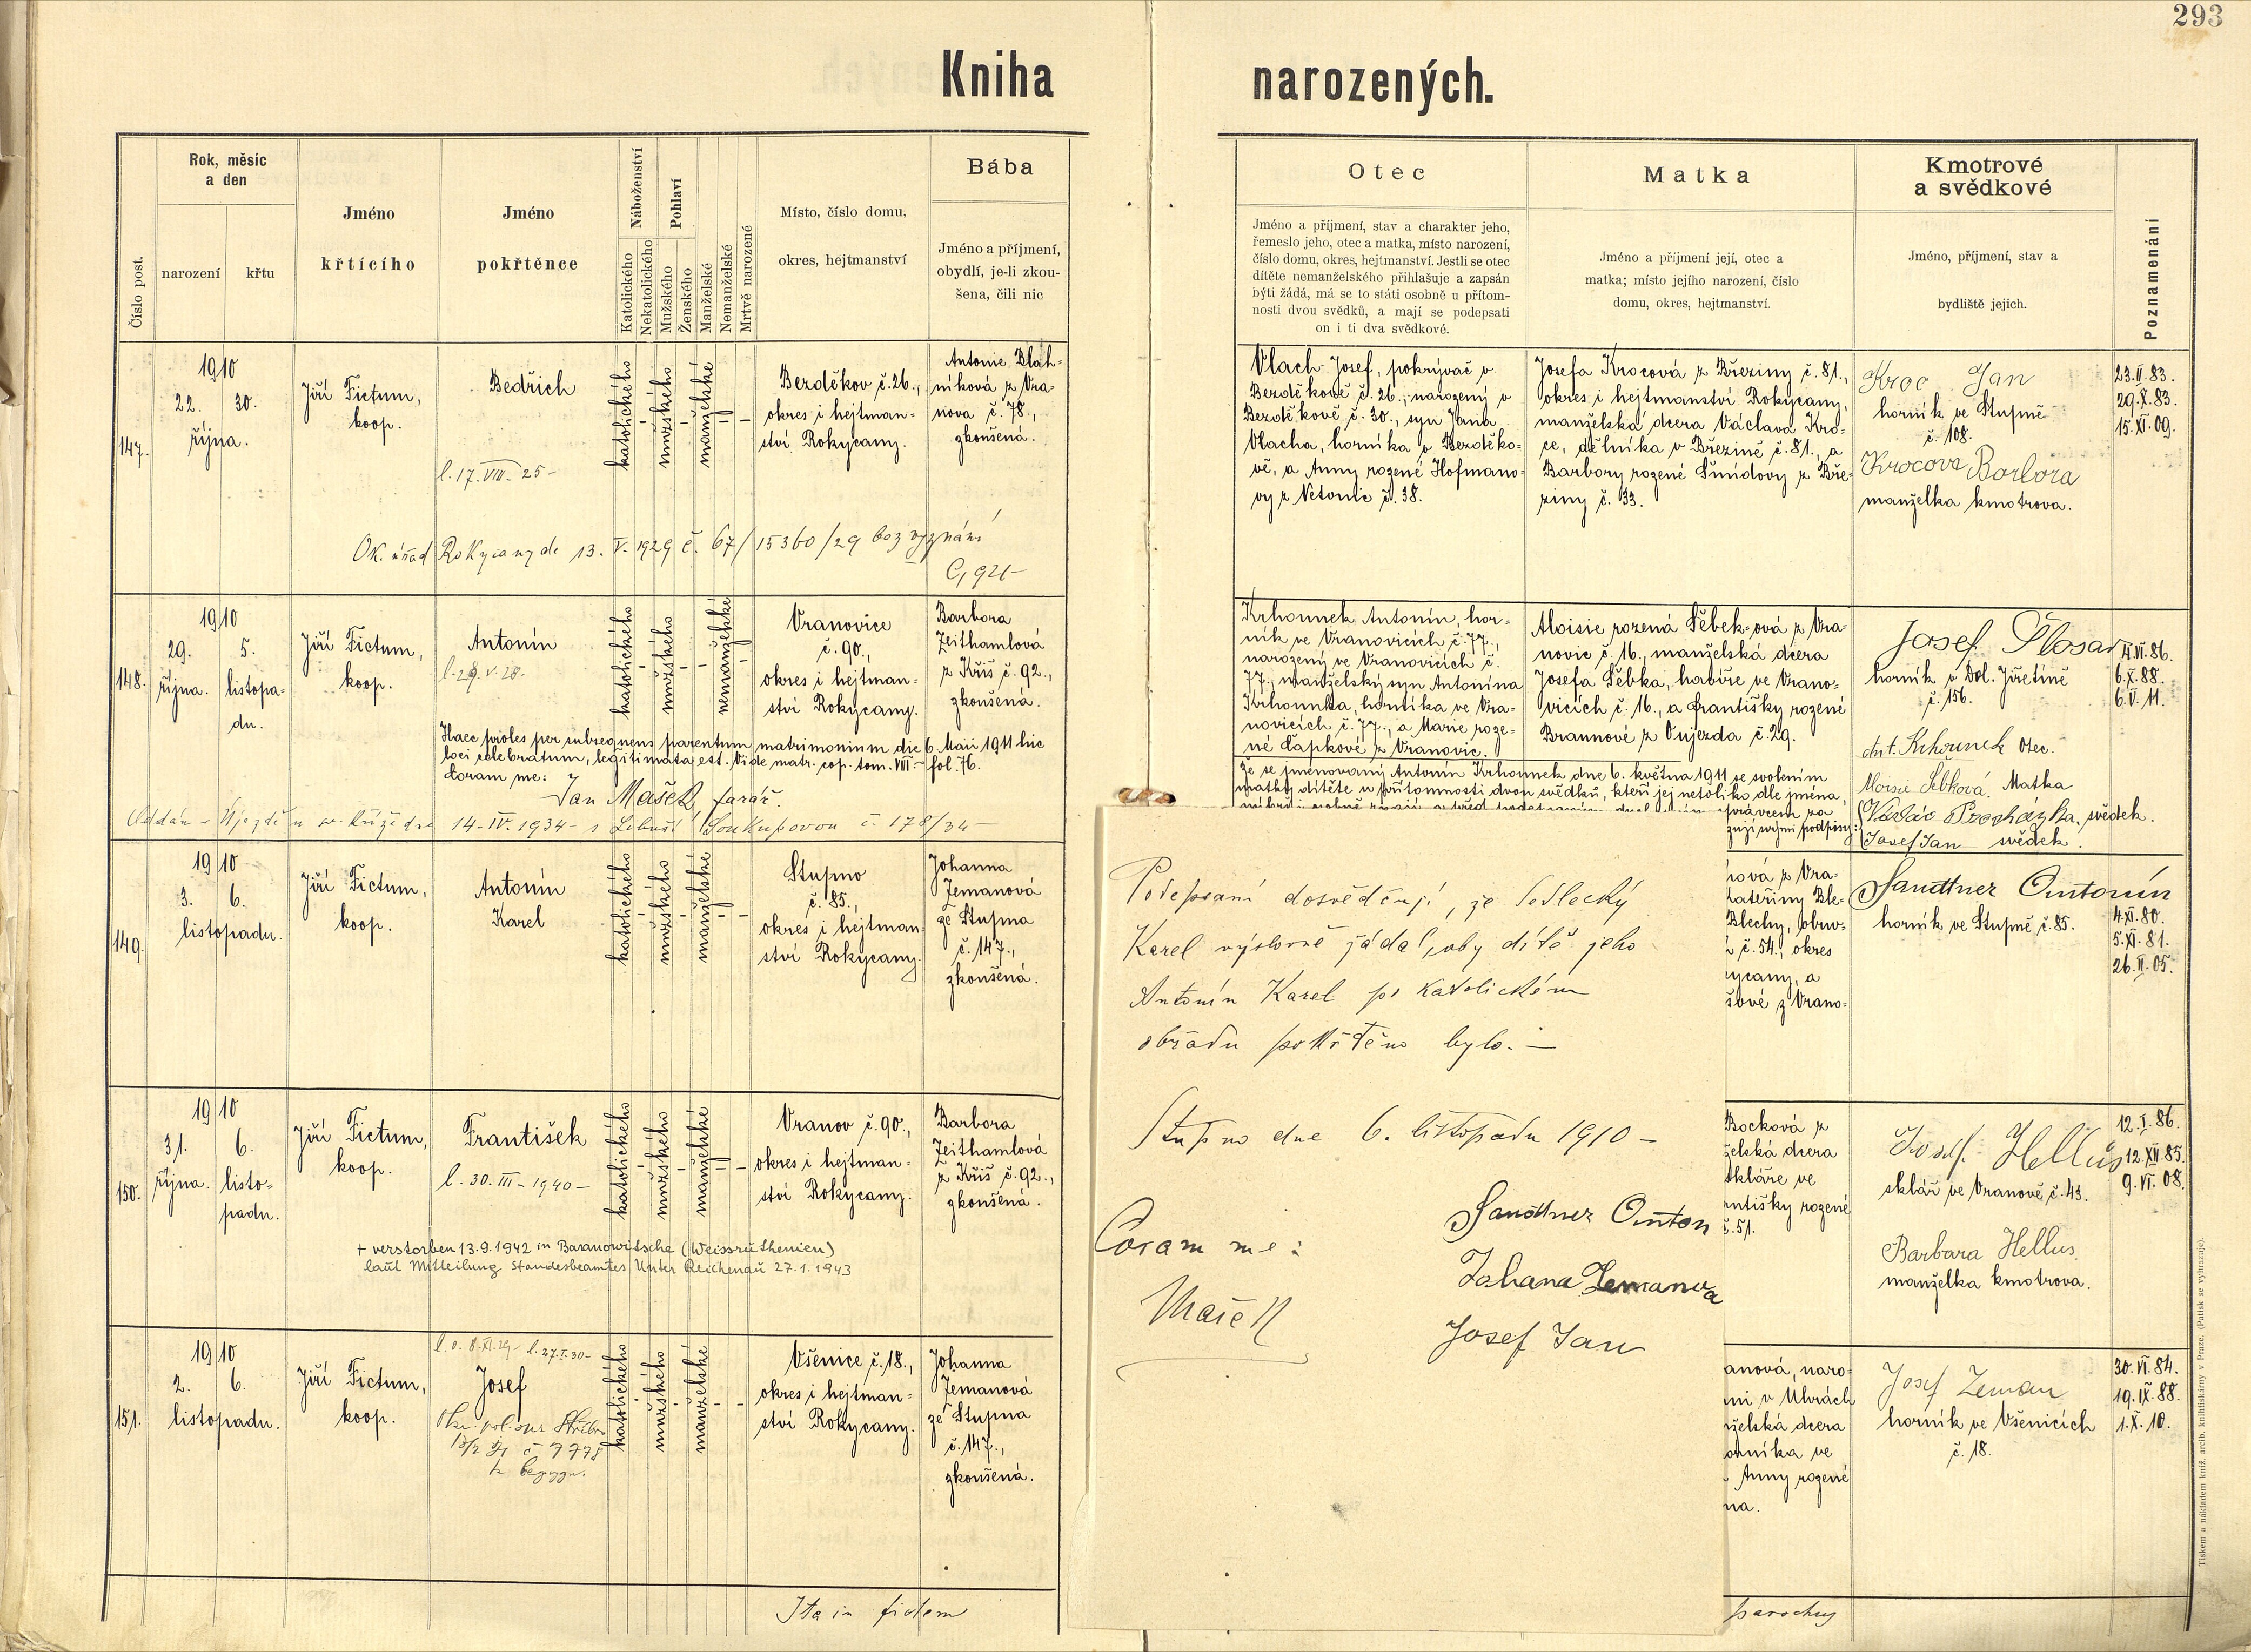 293
Kniha narozených.
Číslo post.
Rok, měsíc
a den
narození
křtu
Jméno
křtícího
Jméno
pokřtěnce
Náboženství
Katolického
Nekatolického
Pohlaví
Mužského
Ženského
Manželské
Nemanželské
Mrtvě narozené
Místo, číslo domu,
okres, hejtmanství
Bába
Jméno a příjmení,
obydlí, je-li zkou-
šena, čili nic
Otec
Jméno a příjmení, stav a charakter jeho,
řemeslo jeho, otec a matka, místo narození,
číslo domu, okres, hejtmanství. Jestli se otec
dítěte nemanželského přihlašuje a zapsán
býti žádá, má se to státi osobně u přítom-
nosti dvou svědků, a mají se podepsati
on i ti dva svědkové.
Matka
Jméno a příjmení její, otec a
matka; místo jejího narození, číslo
domu, okres, hejtmanství.
Kmotrové
a svědkové
Jméno, příjmení, stav a
bydliště jejich.
Poznamenání
147.
1910
22. 30.
října.
Jiří Fictum,
koop.
Bedřich
l. 17. VIII. 25 -
katolického
mužského
manželské
Bezděkov č. 26.,
okres i hejtman=
ství Rokycany.
Antonie Blah=
níková z Vra=
nova č. 78.,
zkoušená.
Ok. úřad Rokycany de 13. V. 1929 č. 67/15360/29 bez vyznání
Vlach Josef, pokrývač v
Bezděkově č. 26., narozený v
Bezděkově č. 30., syn Jana
Vlacha, horníka v Bezděko=
vě, a Anny rozené Hofmano=
vy z Vetonic č. 38.
Josefa Krocová z Březiny č. 81.,
okres i hejtmanství Rokycany,
manželská dcera Václava Kro=
ce, dělníka v Březině č. 81., a
Barbory rozené Šmídovy z Bře=
ziny č. 33.
Kroc Jan
horník ve Stupně
č. 108.
Krocova Barbora
manželka kmotrova.
23. II. 83.
29. X. 83.
15. XI. 09.
148.
1910
29. 5.
října. listopa=
du.
Jiří Fictum,
koop.
Antonín
l. 29. V. 28.
katolického
mužského
nemanželské
Vranovice
č. 90.,
okres i hejtman=
ství Rokycany.
Barbora
Zeithamlová
z Kříš č. 92.,
zkoušená.
Haec proles per subsequens parentum matrimonium die 6. Maii 1911 hic
loci celebratum, legitimata est. Vide matr. cop. tom. VIII - fol. 76.
Coram me:
Jan Mašek, farář.
Oddán v Újezdě u sv. Kříže dne 14. IV. 1934 - s Libuší Soukupovou č. 178/34 -
Krhounek Antonín, hor=
ník ve Vranovicích č. 77.,
narozený ve Vranovicích č.
77., manželský syn Antonína
Krhounka, horníka ve Vra=
novicích č. 77., a Marie roze=
né Čapkové z Vranovic.
Že se jmenovaný Antonín Krhounek dne 6. května 1911 se svolením
matky dítěte u přítomnosti dvou svědků, kteří jej netoliko dle jména,
Aloisie rozená Šebek=ová z Vra=
novic č. 16., manželská dcera
Josefa Šebka, havíře ve Vrano=
vicích č. 16., a Františky rozené
Braunové z Oujezda č. 29.
Josef Šlosar
horník v Dol. Jiřetíně
č. 156.
Ant. Krhounek Otec.
Aloisie Šebková. Matka
Václav Procházka, svědek.
Josef Jan svědek.
6. X. 88.
6. V. 11.
149.
1910
3. 6.
listopadu.
Jiří Fictum,
koop.
Antonín
Karel
katolického
mužského
manželské
Stupno
č. 85.,
okres i hejtman=
ství Rokycany.
Johanna
Zemanová
ze Stupna
č. 147.,
zkoušená.
nová z Vra=
Kateřiny Ble=
Blechy, obuv=
č. 54., okres
ycany, a
šové z Vrano=
Sandtner Antonín
horník ve Stupně č. 85.
4. XI. 80.
5. XI. 81.
26. II. 05.
Podepsaní dosvědčují, že Sedlecký
Karel výslovně žádal, aby dítě jeho
Antonín Karel po katolickém
obřadu pokřtěno bylo. -
Stupno dne 6. listopadu 1910 -
Coram me:
Mašek
Sandtner Anton
Johana Zemanova
Josef Jan
150.
1910
31. 6.
října. listo=
padu.
Jiří Fictum,
koop.
František
l. 30. III - 1940 -
katolického
mužského
manželské
Vranov č. 90.,
okres i hejtman=
ství Rokycany.
Barbora
Zeithamlová
z Kříš č. 92.,
zkoušená.
+ verstorben 13.9.1942 in Baranowitsche (Weissruthenien)
laut Mitteilung Standesbeamtes Unter Reichenau 27.1.1943
Bocková z
želská dcera
skláře ve
antišky rozené
č. 51.
Josef Hellus
sklář ve Vranově č. 43.
Barbara Hellus
manželka kmotrova.
12. I. 86.
12. XII. 85.
9. VI. 08.
151.
1910
2. 6.
listopadu.
Jiří Fictum,
koop.
l. o. 8. XI. 29 - l. 27. I. 30 -
Josef
katolického
mužského
manželské
Všenice č. 18.,
okres i hejtman=
ství Rokycany.
Johanna
Zemanová
ze Stupna
č. 147.,
zkoušená.
anová, naro=
v Uhrách
želská dcera
orníka ve
Anny rozené
na.
Josef Zeman
horník ve Všenicích
č. 18.
30. VI. 84.
19. IX. 88.
1. X. 10.
Ita in fidem
parochus
Tiskem a nákladem kníž. arcib. knihtiskárny v Praze. (Patisk se vyhrazuje).